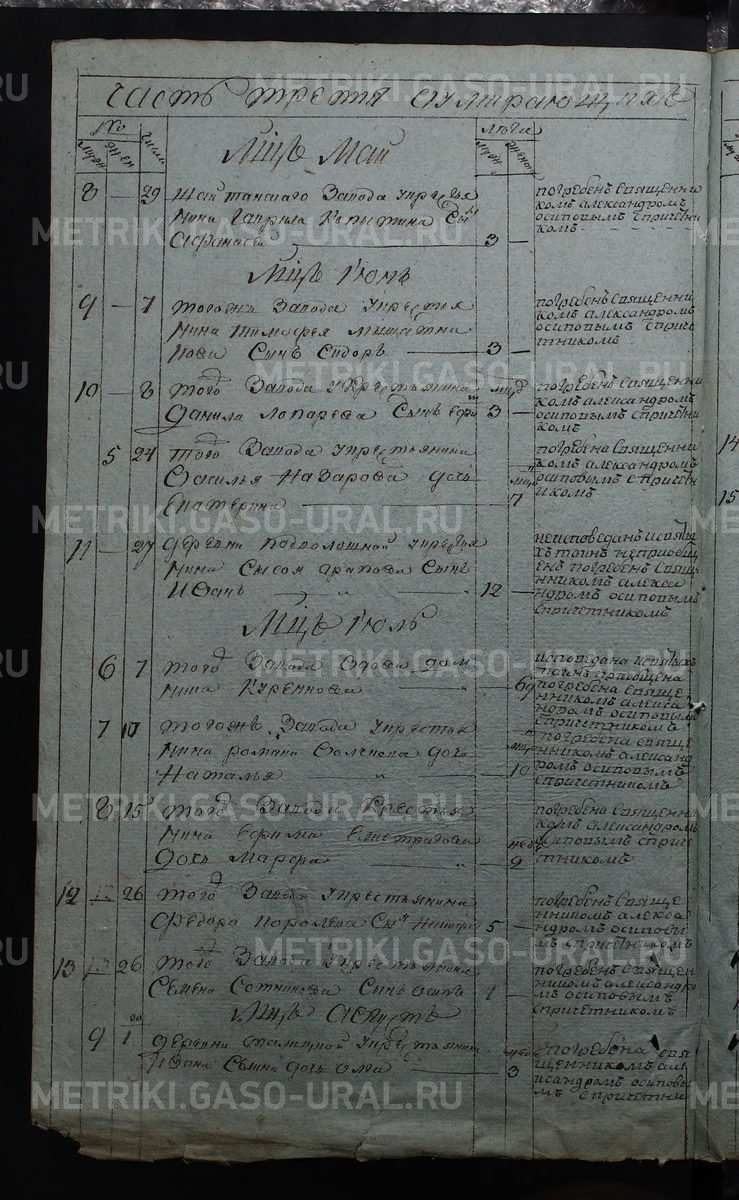 часть третья о умирающихъ
No числа лѣта
муж жен муж женск
Мцъ Маи
8 — 29 Шайтанскаго Завода укрестья
нина Гаврила Никитина сы
Афанасеи 3 —
погребенъ священни
комъ александромъ
осиповымъ спричетни
комъ
Мцъ Июнь
9 — 7 тогожъ Завода укрестья
нина тимофея
нова Сынъ Сидоръ 3 —
погребенъ священни
комъ александромъ
осиповымъ сприче
тникомъ
10 — 8 того Завода укрестьянина
Данила лопарева Сынъ 3 —
погребенъ священни
комъ александромъ
осиповымъ спричетни
комъ
5 24 того Завода укрестьянина
Василья Назарова дочь
Екатерина 7
погребена священни
комъ александромъ
осиповымъ спричетн
икомъ
11 — 27 деревни Подволошной укрестья
нина Сысоя арапова Сынъ
Иванъ 12 —
неисповеданъ исвяты
хъ таинъ неприобщ
енъ погребенъ свяще
нникомъ алекса
ндромъ осиповымъ
спричетникомъ
Мцъ Июль
6 7 того Завода вдова дом
нина Куренкова 69
исповедана исвятыхъ
таинъ приобщена
погребена свяще
нникомъ алекса
ндромъ осиповымъ
спричетникомъ
7 10 тогожъ Завода укрестья
нина романа дочь
Наталья 10
погребена свяще
нникомъ александ
ромъ осиповымъ
спричетникомъ
8 15 того Завода Крестья
нина ефима елистратова
дочь марфа 2
погребена священни
комъ александромъ
осиповымъ сприче
тникомъ
12 26 того Завода укрестьянина
федора королева сы 5 —
погребенъ священ
нникомъ алекса
ндромъ осипови
мъ спричетникомъ
13 26 того Завода укрестьянина
Семена Сотникова Сынъ осипъ 1 —
погребенъ священ
никомъ александро
мъ осиповымъ
спричетникомъ
Мцъ Августъ
9 1 деревни талицкой укрестьянина
Ивана Сѣмина дочь 3
погребена свя
щенникомъ але
ксандромъ осиповы
мъ спричетни
14
15
METRIKI.GASO-URAL.RU